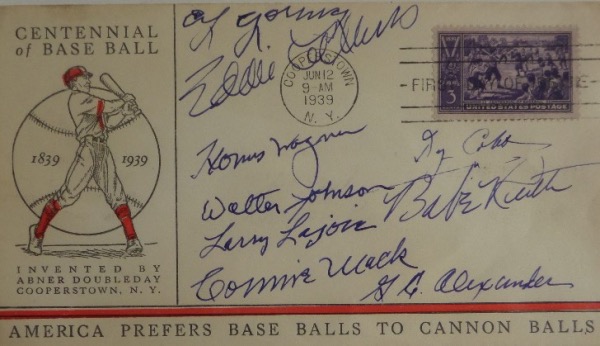 CENTENNIAL
of BASE BALL
1839 1939
INVENTED BY
ABNER DOUBLEDAY
COOPERSTOWN, N. Y.
Cy Young
Eddie Collins
COOPERSTOWN
JUN 12
9-AM
1939
N. Y.
FIRST DAY OF ISSUE
3
UNITED STATES POSTAGE
Honus Wagner
Ty Cobb
Walter Johnson
Babe Ruth
Larry Lajoie
Connie Mack
G. C. Alexander
AMERICA PREFERS BASE BALLS TO CANNON BALLS